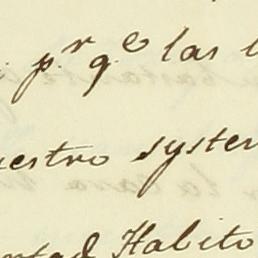 pr qe las
estro system
rtad Habito